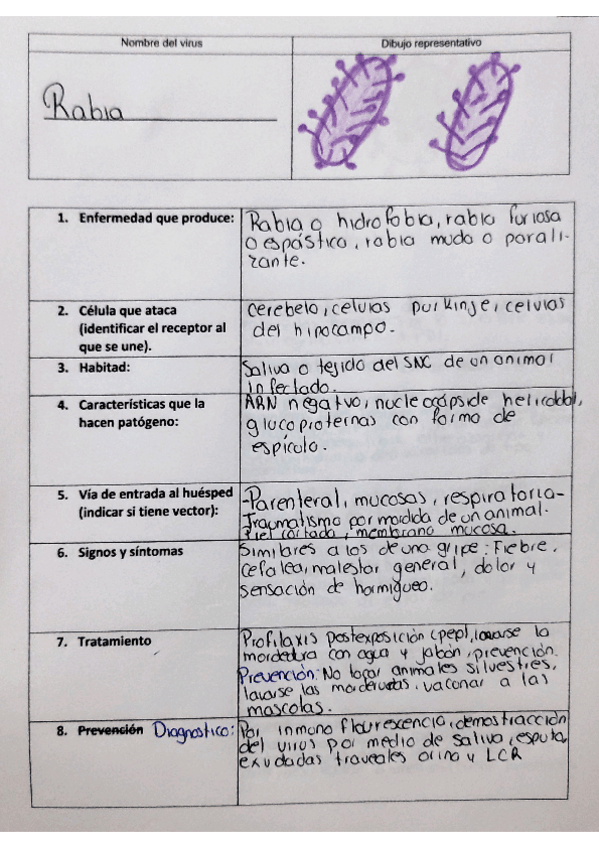 Nombre del virus
Dibujo representativo
Rabia
1. Enfermedad que produce:
Rabia o hidrofobia, rabia furiosa
o espástica, rabia muda o parali-
zante.
2. Célula que ataca
(identificar el receptor al
que se une).
Cerebelo, celulas purkinje, celulas
del hipocampo.
3. Habitad:
Saliva o tejido del SNC de un animal
infectado.
4. Características que la
hacen patógeno:
ARN negativo, nucleocápside helicoidal,
glucoproteinas con forma de
espícula.
5. Vía de entrada al huésped
(indicar si tiene vector):
-Parenteral, mucosas, respiratoria-
Traumatismo por mordida de un animal.
Piel cortada, membrana mucosa.
6. Signos y síntomas
Similares a los de una gripe: Fiebre,
cefalea, malestar general, dolor y
sensación de hormigueo.
7. Tratamiento
Profilaxis postexposición (pep), lavarse la
mordedura con agua y jabón, prevención.
Prevención: No tocar animales silvestres,
lavarse las mordeduras, vacunar a las
mascotas.
8. Prevención Diagnostico:
Por inmuno flourescencia, demostracción
del virus por medio de saliva, esputo,
exudadas traqueales orina y LCR